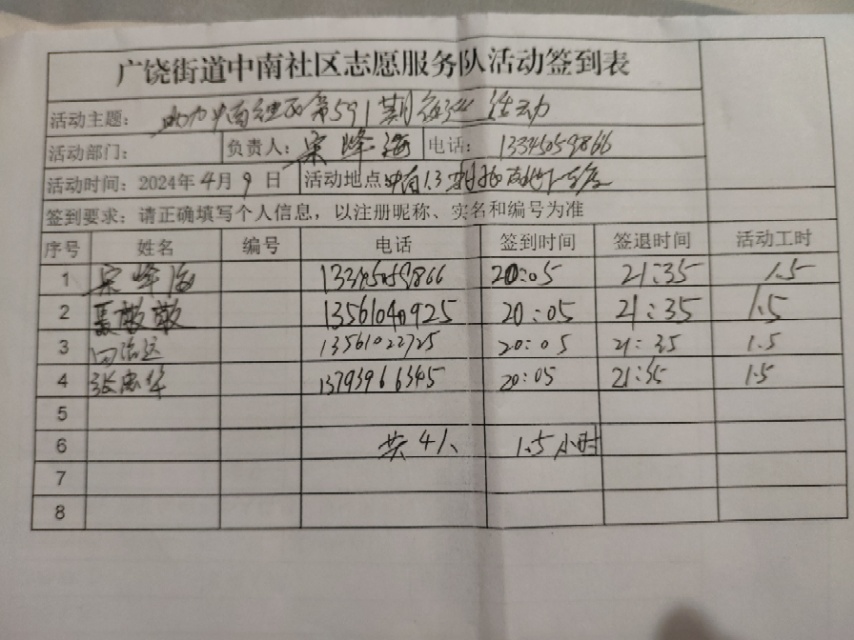 广饶街道中南社区志愿服务队活动签到表
活动主题：助力中南社区第591期夜巡活动
活动部门： 负责人：宋峰海 电话：13345059866
活动时间：2024年4月9日 活动地点
签到要求：请正确填写个人信息，以注册昵称、实名和编号为准
序号 姓名 编号 电话 签到时间 签退时间 活动工时
1 宋峰海 13345059866 20:05 21:35 1.5
2 聂敬敬 13561040925 20:05 21:35 1.5
3 13561022725 20:05 21:35 1.5
4 13793966345 20:05 21:35 1.5
5
6 共4人 1.5小时
7
8